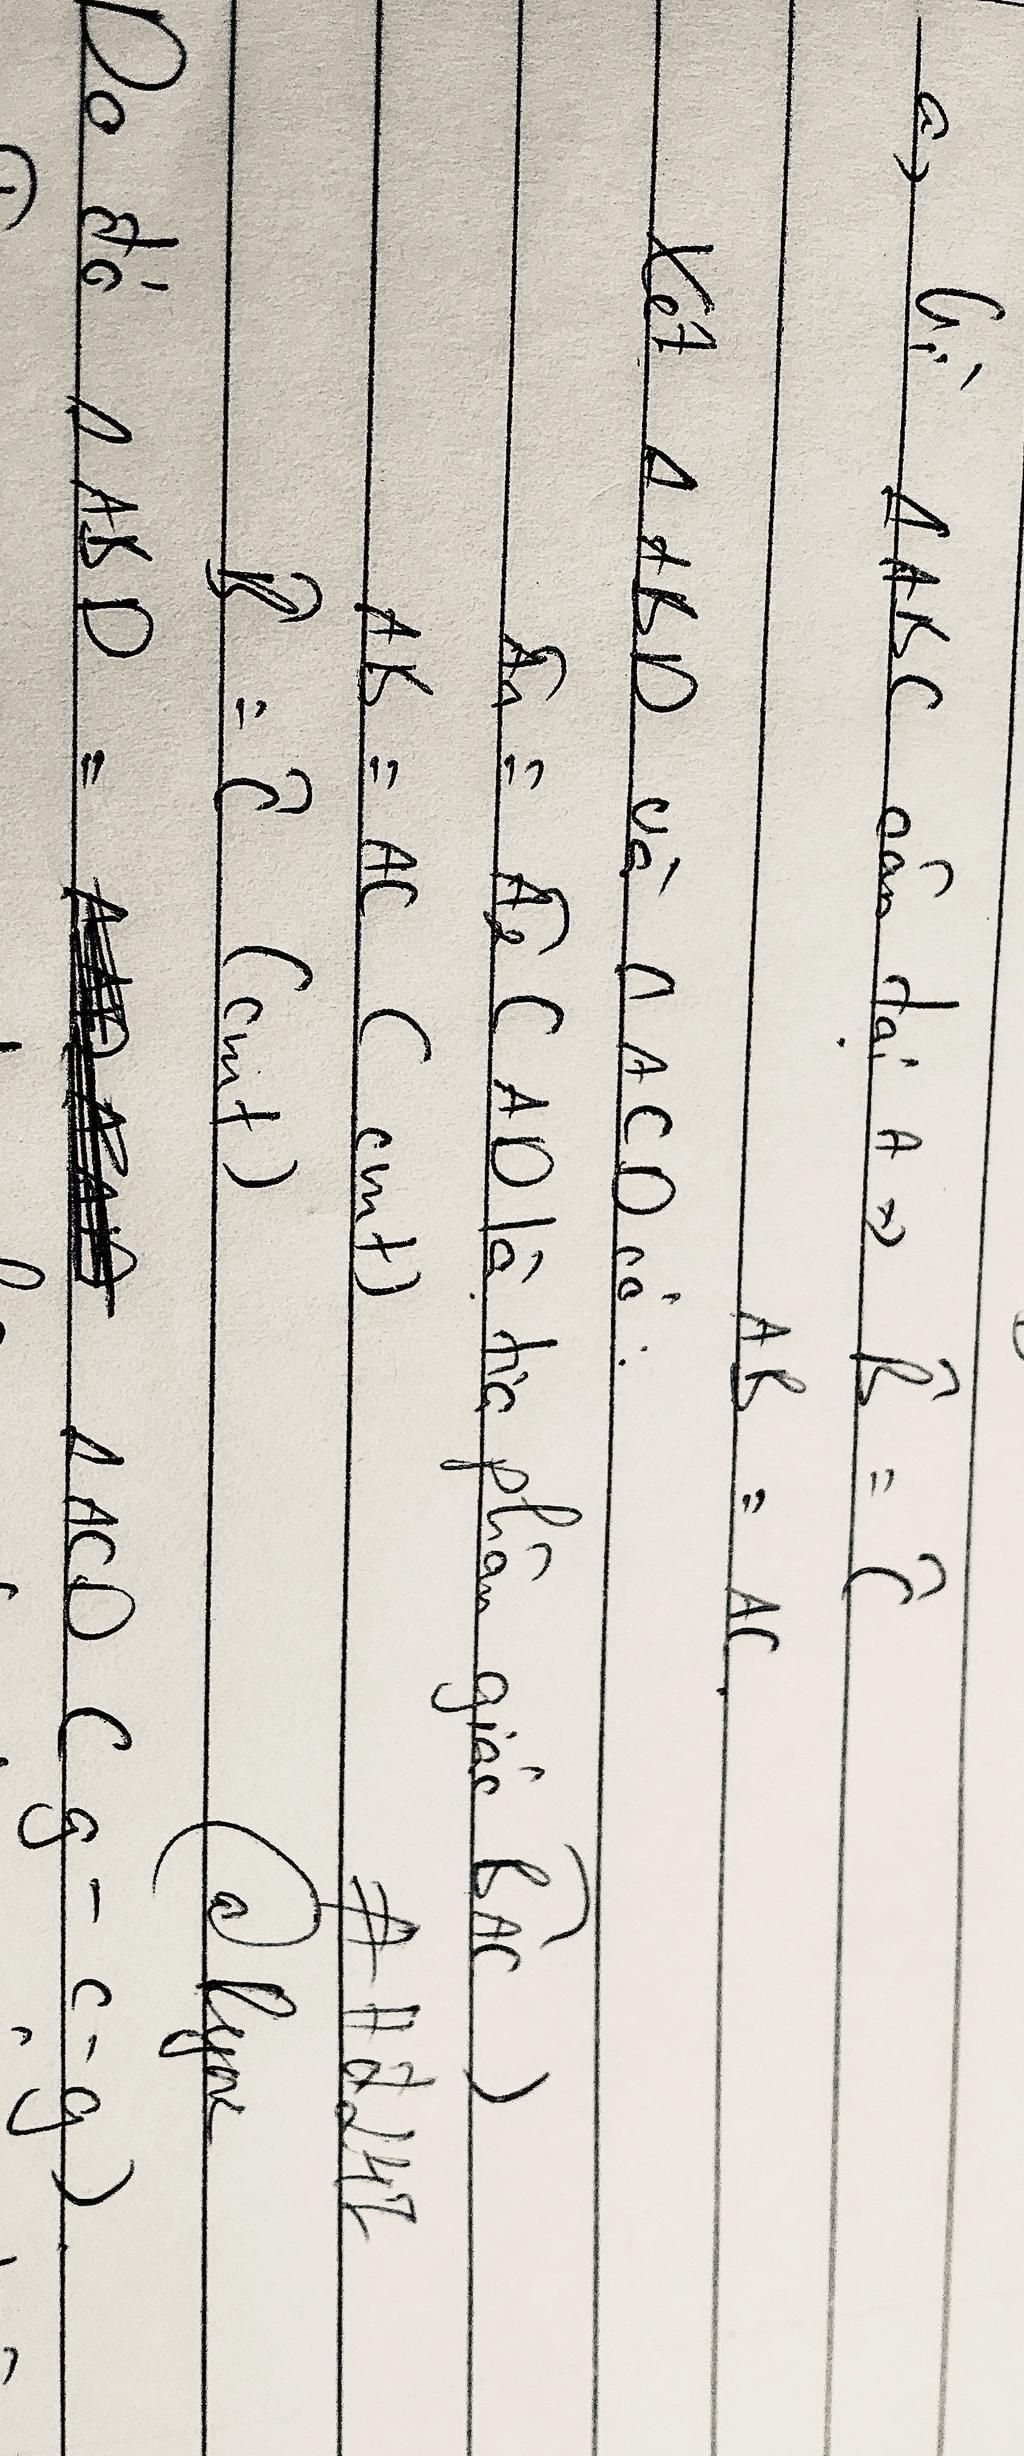 a) Vì ΔABC cân tại A => B̂ = Ĉ
AB = AC.
Xét ΔABD và ΔACD có:
Â₁ = Â₂ (AD là tia phân giác BAC)
AB = AC (cmt)
B̂ = Ĉ (cmt)
Do đó ΔABD = ΔACD (g-c-g).